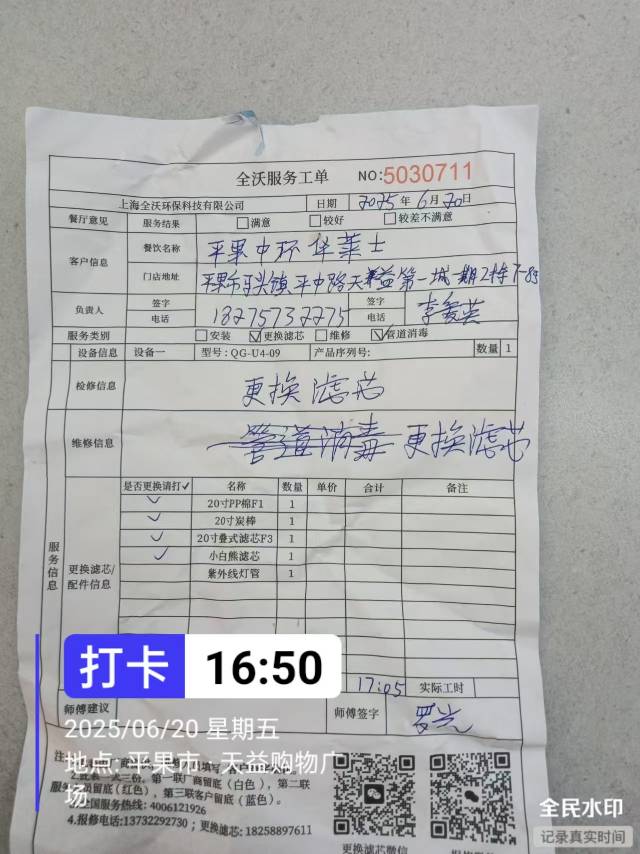 全沃服务工单 NO:5030711
上海全沃环保科技有限公司 日期 2025年6月20日
餐厅意见 服务结果 满意 较好 较差不满意
客户信息 餐饮名称 平果中环华莱士
门店地址 平果市马头镇平中路天益第一城 期2栋1-83
负责人 签字 签字
电话 18275732275 电话 李爱英
服务类别 安装 更换滤芯 维修 管道消毒
设备信息 设备一 型号:QG-U4-09 产品序列号: 数量 1
检修信息 更换滤芯
维修信息 管道消毒 更换滤芯
服务信息
更换滤芯/配件信息
是否更换请打✓ 名称 数量 单价 合计 备注
✓ 20寸PP棉F1 1
✓ 20寸炭棒 1
✓ 20寸叠式滤芯F3 1
✓ 小白熊滤芯 1
紫外线灯管 1
17:05 实际工时
师傅建议 师傅签字
打卡 16:50
2025/06/20 星期五
地点: 平果市·天益购物广
场
2.此表一式三份，第一联厂商留底(白色)，第二联
留底(红色)，第三联客户留底(蓝色)。
全国服务热线: 4006121926
4.报修电话:13732292730 ; 更换滤芯: 18258897611
更换滤芯微信
全民水印
记录真实时间